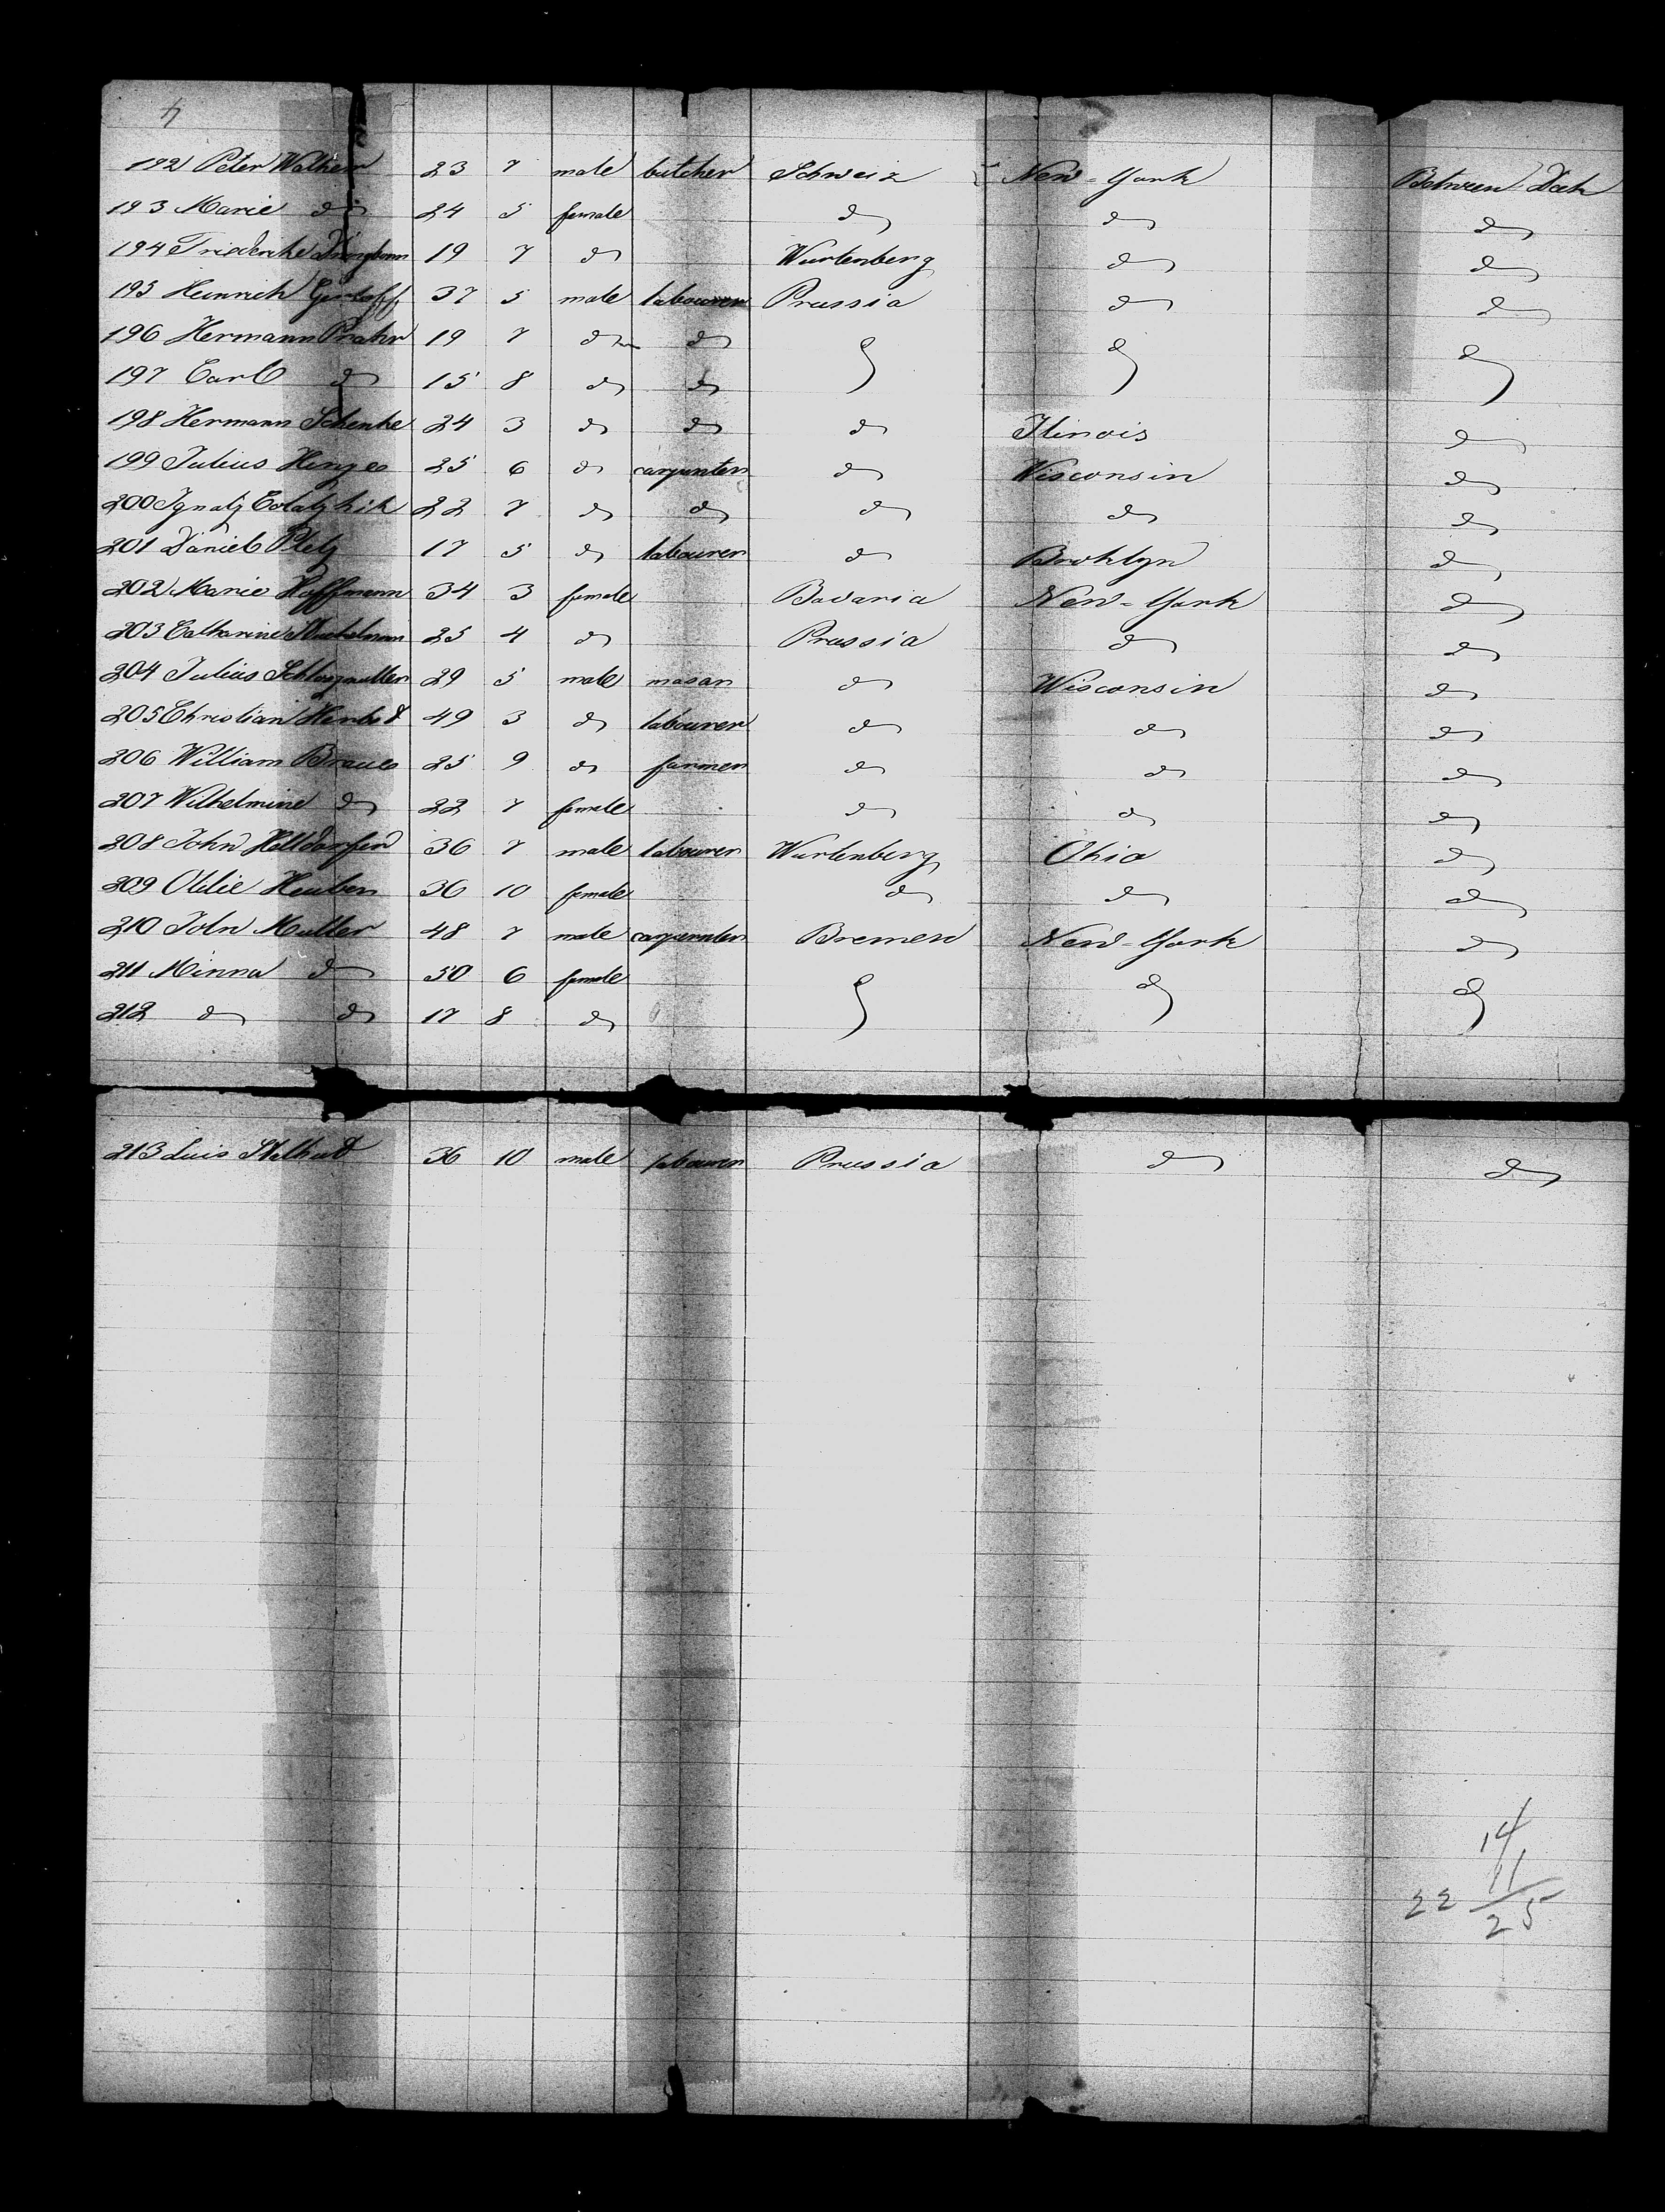 4
192 Peter Walher 23 7 male butcher Schweiz New-York Between Deck
193 Marie do 24 5 female do do do
194 Friederike 19 7 do Wurtenberg do do
195 Heinrich Gerloff 37 5 male labourer Prussia do do
196 Hermann Prahr 19 7 do do do do do
197 Carl do 15 8 do do
198 Hermann Schenke 24 3 do do do Ilinois do
199 Julius Hinze 25 6 do carpenter do Wisconsin do
200 Ignatz 22 7 do do do do do
201 Daniel Pletz 17 5 do labourer do Broklyn do
202 Marie Hoffmann 34 3 female Bavaria New-York do
203 Catharine 25 4 do Prussia do do
204 Julius 29 5 male mason do Wisconsin do
205 Christian Herbst 49 3 do labourer do do do
206 William Braue 25 9 do farmer do do do
207 Wilhelmine do 22 7 female do do do
208 John 36 7 male labourer Wurtenberg Ohio do
209 Otilie Heuber 36 10 female do do do
210 John Muller 48 7 male carpenter Bremen New-York do
211 Minna do 50 6 female do do do
212 do do 17 8 do
213 Luis 36 10 male labourer Prussia do do
14
11
22 25